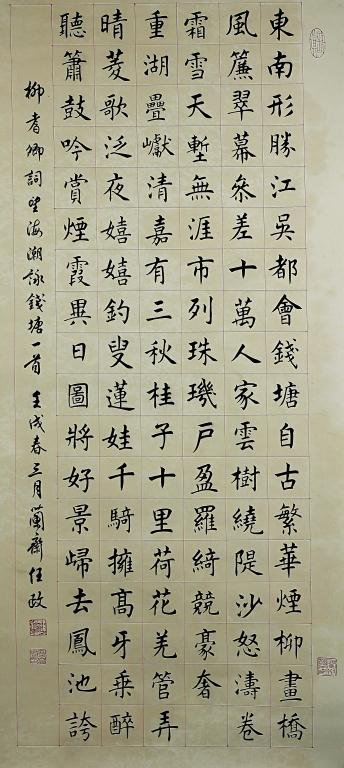 東南形勝江吳都會錢塘自古繁華煙柳畫橋
風簾翠幕參差十萬人家雲樹繞隄沙怒濤卷
霜雪天塹無涯市列珠璣戶盈羅綺競豪奢
重湖疊巘清嘉有三秋桂子十里荷花羌管弄
晴菱歌泛夜嬉嬉釣叟蓮娃千騎擁髙牙乘醉
聽簫鼓吟賞煙霞異日圖將好景歸去鳳池誇
柳耆卿詞望海潮詠錢塘一首 壬戌春三月蘭齋任政